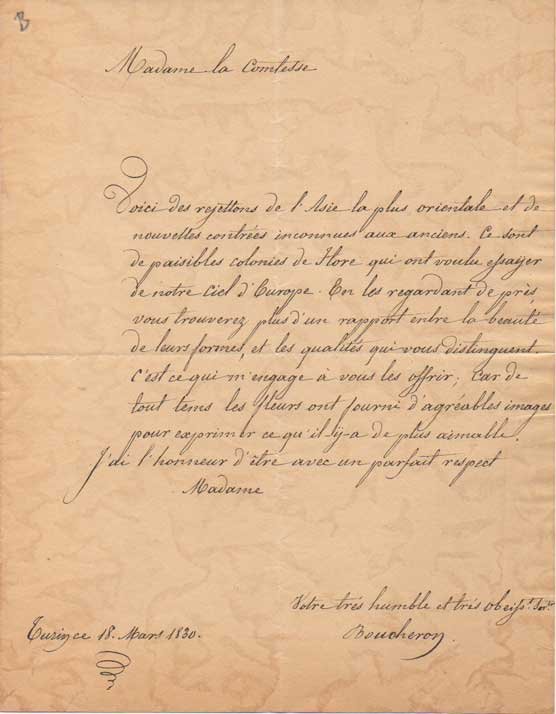 B
Madame la Comtesse
Voici des rejettons de l'Asie la plus orientale et de
nouvettes contrées inconnues aux anciens. Ce sont
de paisibles colonies de Flore qui ont voulu essayer
de notre ciel d'Europe. En les regardant de près
vous trouverez plus d'un rapport entre la beauté
de leurs formes, et les qualités qui vous distinguent.
C'est ce qui m'engage à vous les offrir; car de
tout tems les fleurs ont fourni d'agréables images
pour exprimer ce qu'il y-a de plus aimable.
J'ai l'honneur d'être avec un parfait respect
Madame
Votre trés humble et trés obeiss.t Ser.r
Turin ce 18. Mars 1830.
Boucheron.